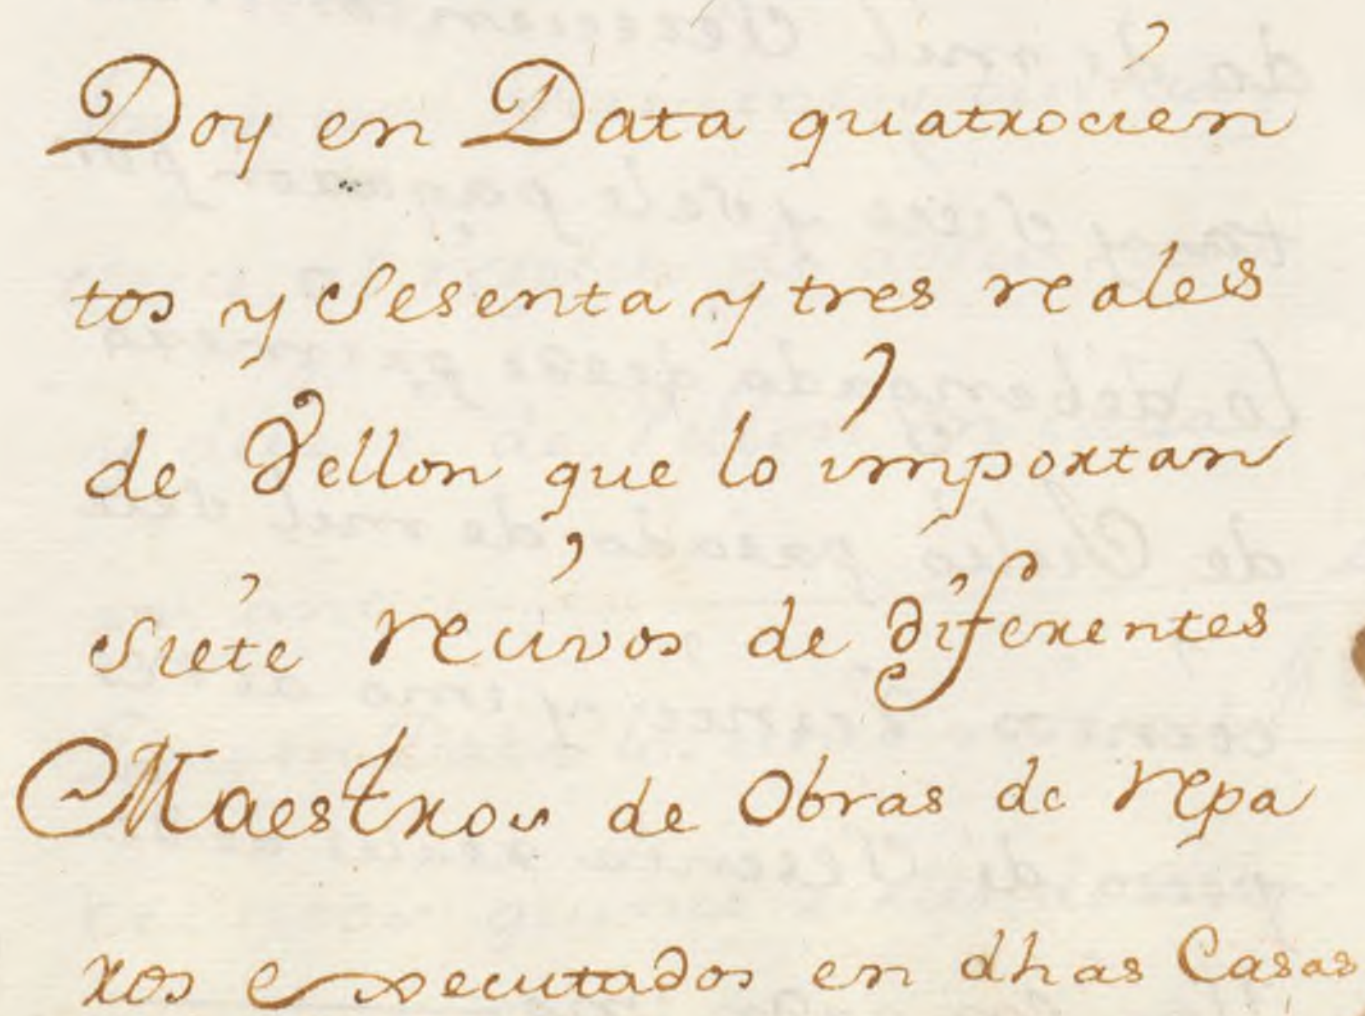 Doy en Data quatrocien
tos y Sesenta y tres reales
de Vellon que lo importan
Siete recivos de diferentes
Maestros de Obras de repa
ros executados en dhas Casas